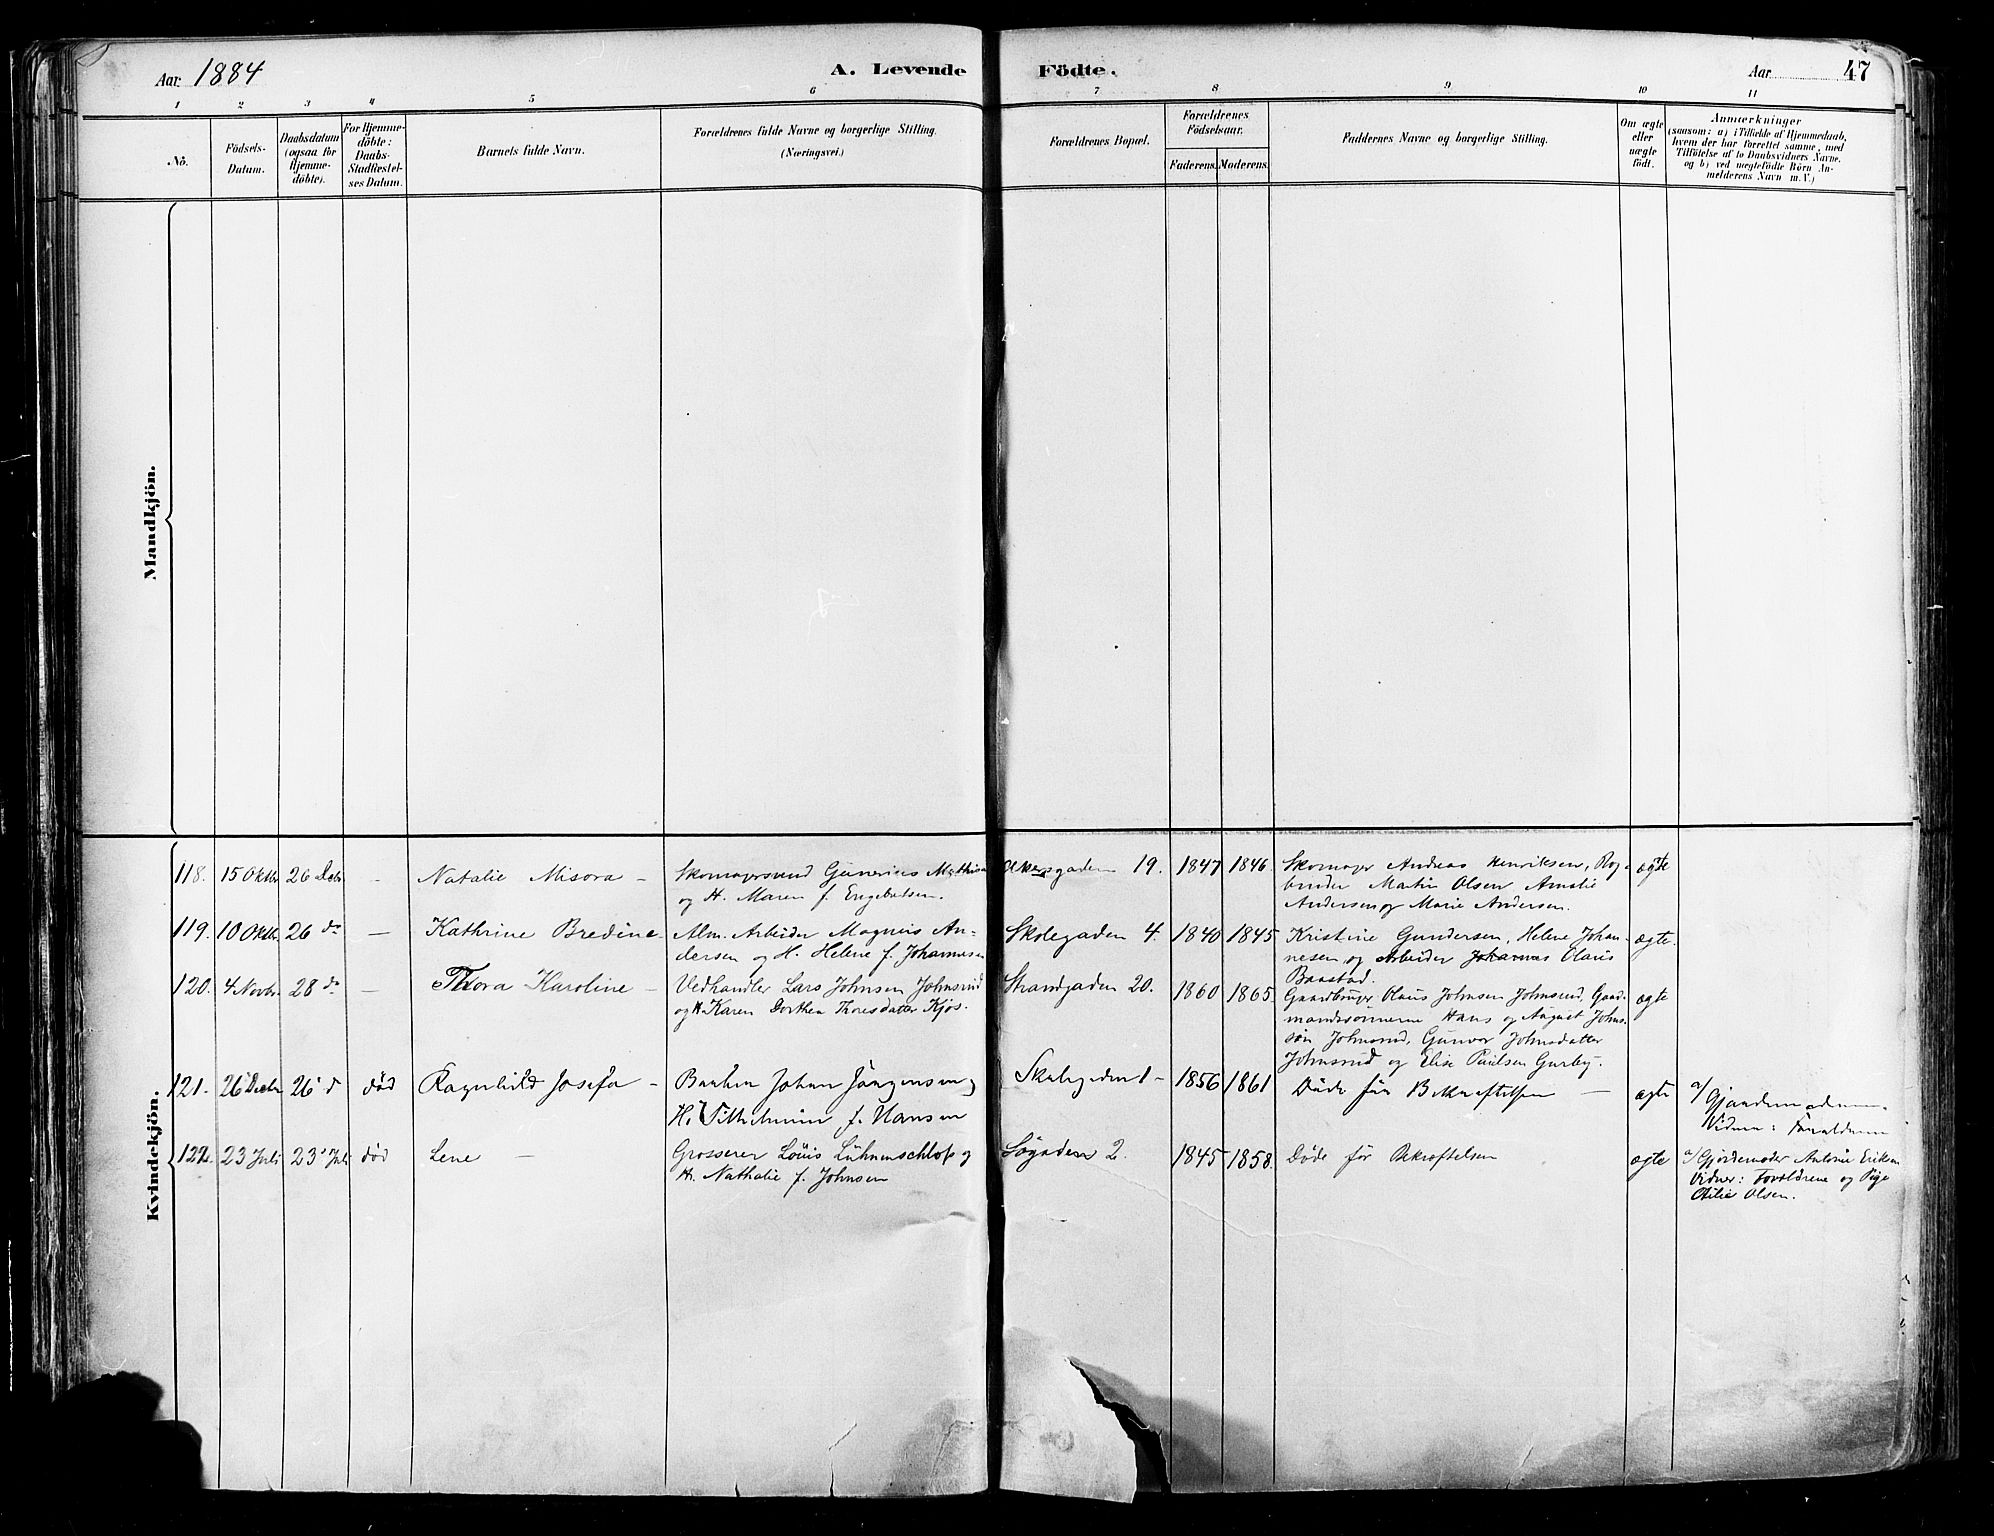 Aar 1884
A. Levende Födte.
Aar 47
1 2 3 4 5 6 7 8 9 10 11
No.
Födsels-Datum.
Daabsdatum (ogsaa for Hjemmedöbte).
For Hjemmedöbte: Daabs-Stadfæstelses Datum.
Barnets fulde Navn.
Forældrenes fulde Navne og borgerlige Stilling.
(Næringsvei.)
Forældrenes Bopæl.
Forældrenes Födselsaar.
Faderens. Moderens.
Faddernes Navne og borgerlige Stilling.
Om ægte eller uægte födt.
Anmærkninger
(saasom: a) i Tilfælde af Hjemmedaab,
hvem der har forrettet samme, med
Tilföielse af to Daabsvidners Navne,
og b) ved uægtefödte Börn An-
melderens Navn m.V.)
Mandkjön.
Kvindekjön.
118. 15 Oktbr 26 Decbr - Natalie Misora - Skomagersvend Gunerius Mathisen
og H. Maren f. Engebretsen.
Akersgaden 19. 1847 1846 Skomager Andreas Henriksen, Bog-
binder Martin Olsen Amalie
Andersen og Marie Andersen.
ægte
119. 10 Oktbr. 26 do - Kathrine Bredine Alm. Arbeider Magnus An-
dersen og H. Helene f. Johannesen
Skolegaden 4. 1840 1845 Kristine Gundersen, Helene Johan-
nesen og Arbeider Johannes Olaus
Baastad.
ægte.
120. 4 Novbr. 28 do - Thora Karoline - Vedhandler Lars Johnsen Johnsrud
og H. Karen Dorthea Thoresdatter Kjos.
Strandgaden 20. 1860 1865. Gaardbruger Olaus Johnsen Johnsrud, Gaard-
mandssönnerne Hans og August Johns-
søn Johnsrud, Gunvor Johnsdatter
Johnsrud og Elise Paulsen Gurby.
ægte
121. 26 Decbr 26 d død Ragnhild Josefa - Johan Jörgensen og
H. Vilhelmine f. Hansen
Skolegaden 1 - 1856 1861 Döde før Bekræftelsen - ægte a/
Vidner: Forældrene
122. 23 Juli 23 Juli død Lene - Grosserer Louis Lühnenschloss og
H. Nathalie f. Johnsen
Søgaden 2. 1845 1858. Døde før Bekræftelsen ægte a/ Gjordemoder Antonie Eriksen
Vidner: Forældrene og Pige
Otilie Olsen.